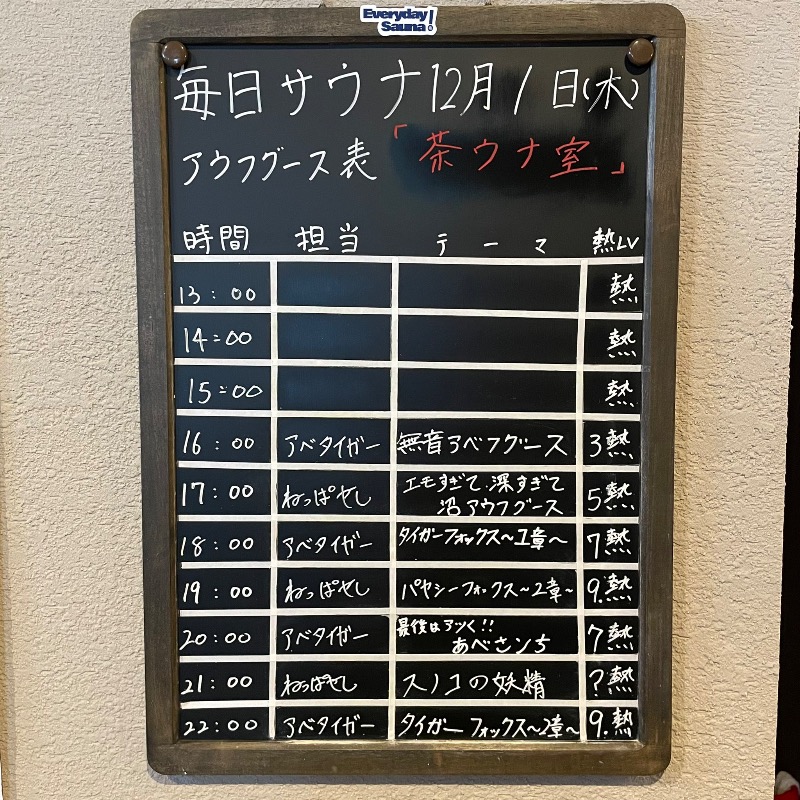 Everyday Sauna!
毎日サウナ 12月1日(木)
アウフグース表「茶ウナ室」
時間 担当 テーマ 熱LV
13:00 熱
14:00 熱
15:00 熱
16:00 アベタイガー 無音アベフグース 3熱
17:00 ねっぱせし エモすぎて、深すぎて
沼アウフグース 5熱
18:00 アベタイガー タイガーフォックス〜1章〜 7熱
19:00 ねっぱせし パヤシーフォックス〜2章〜 9.熱
20:00 アベタイガー 最後はアツく!!
あべさンち 7熱
21:00 ねっぱせし スノコの妖精 ?熱
22:00 アベタイガー タイガーフォックス〜2章〜 9.熱